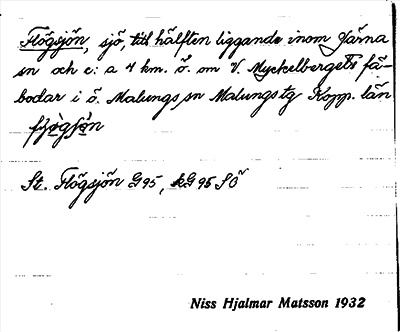 Flögsjön, sjö, till hälften liggande inom Järna
sn och c:a 4 km. ö. om V. Myckelbergets fä-
bodar i ö. Malungs sn Malungs tg Kopp. län
St. Flögsjön G95, kG 95 SÖ
Niss Hjalmar Matsson 1932